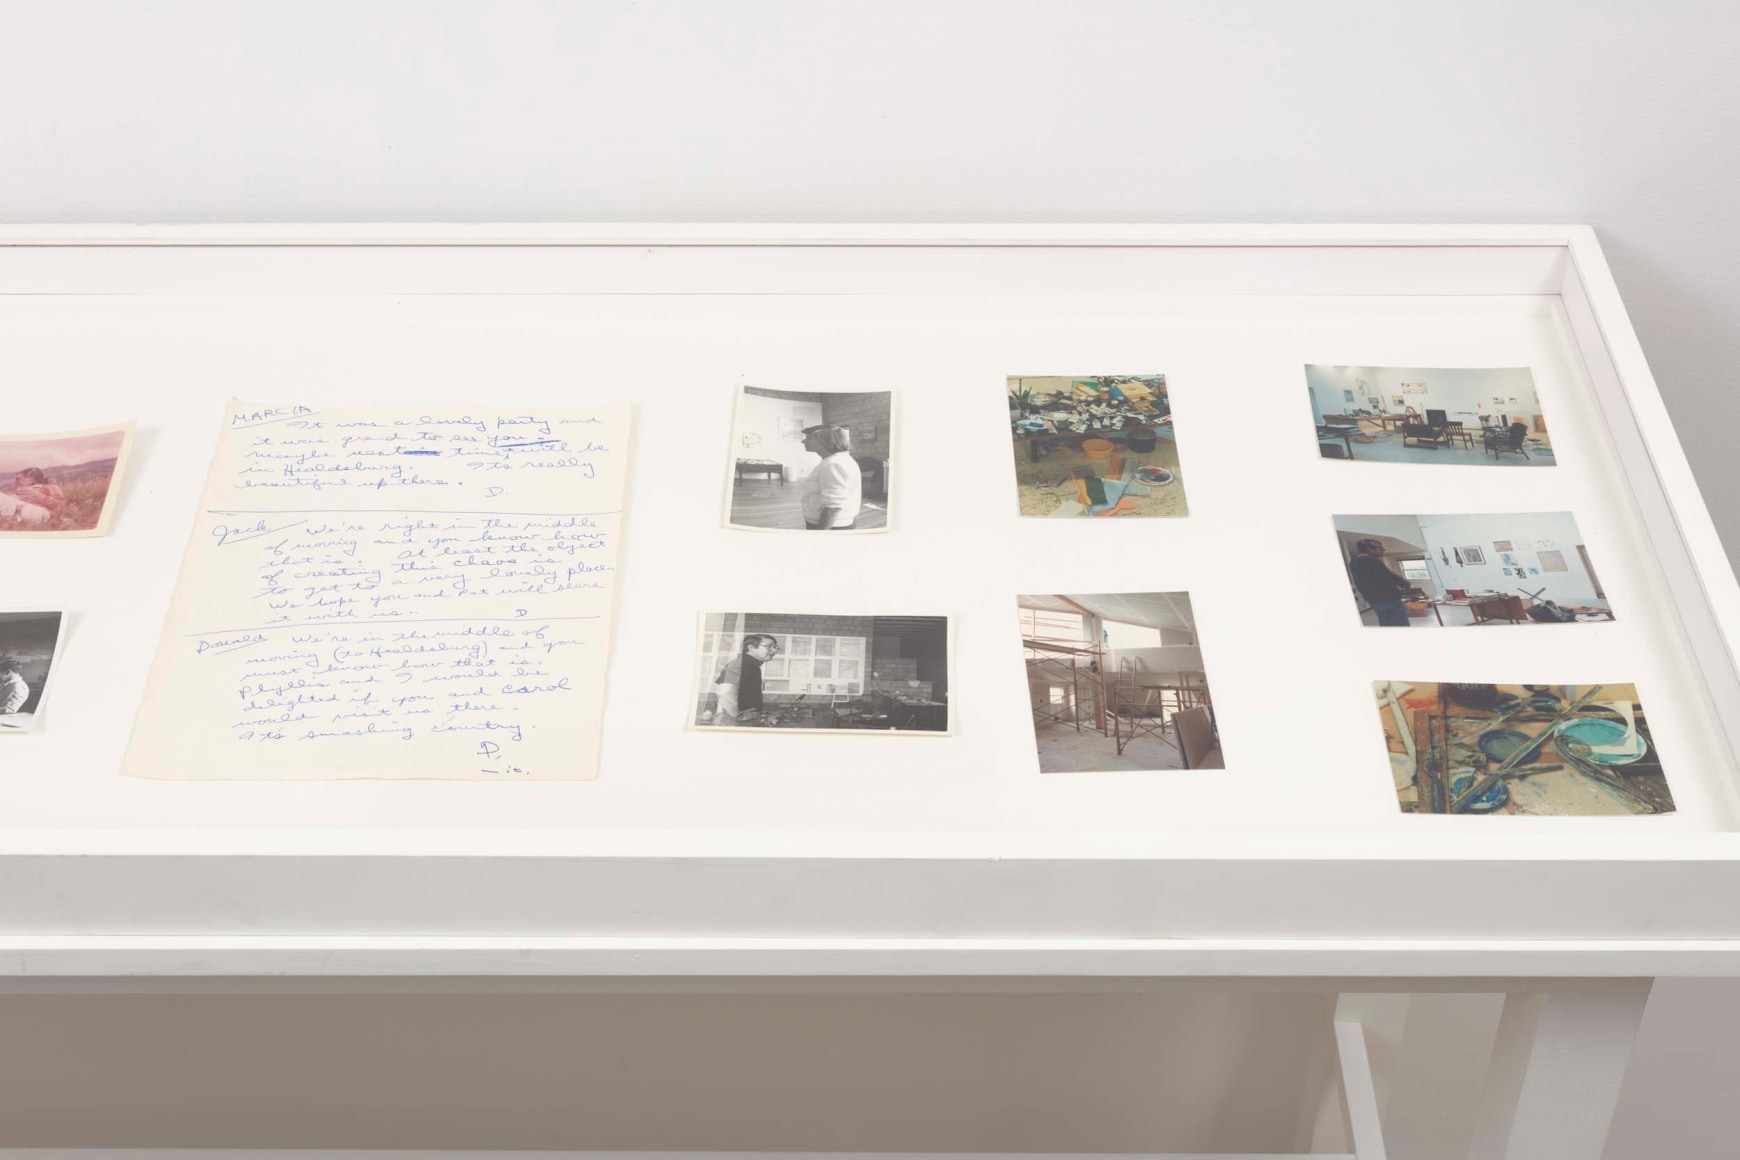 MARCIA
It was a lovely party and
it was grand to see you -
maybe next time will be
in Healdsburg. It's really
beautiful up there.
D.
Jack We're right in the middle
of moving and you know how
that is. At least the object
of creating this chaos is
to get to a very lovely place.
We hope you and Pat will share
it with us..
D
Donald We're in the middle of
moving (to Healdsburg) and you
must know how that is.
Phyllis and I would be
delighted if you and Carol
would visit us there.
It's smashing country.
D.